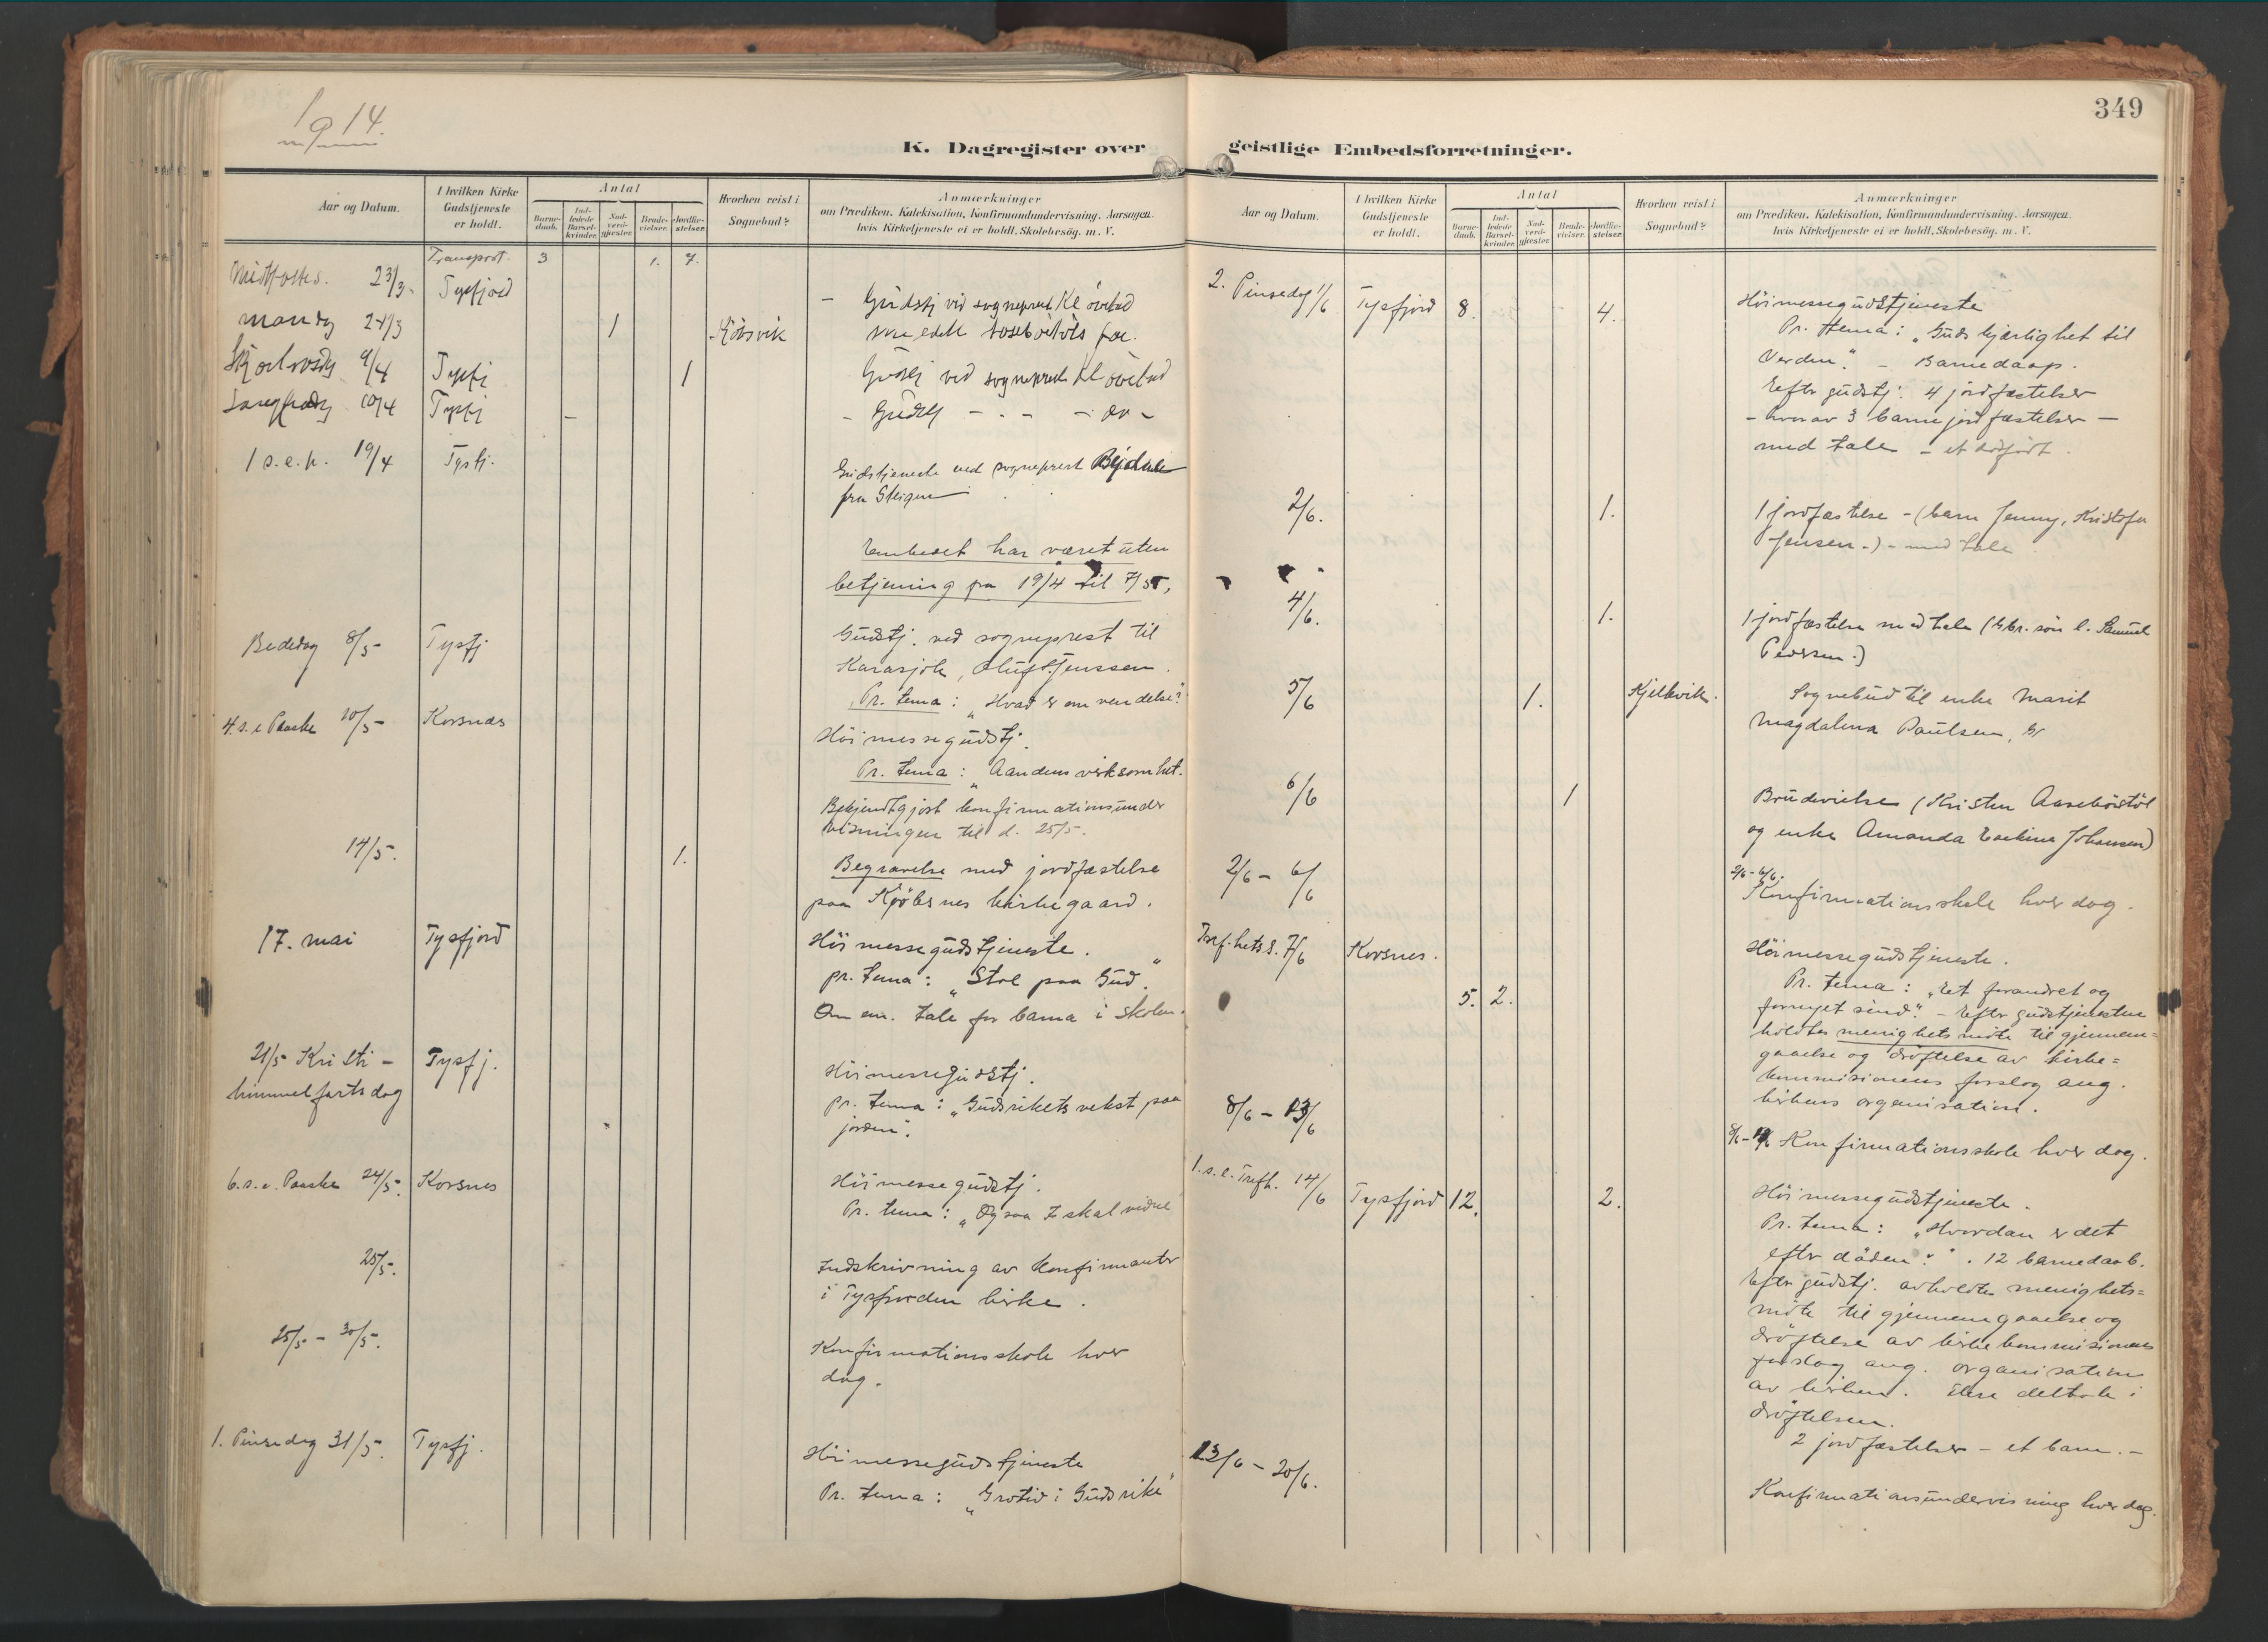 1914.
349
K. Dagregister over geistlige Embedsforretninger.
Aar og Datum.
I hvilken Kirke Gudstjeneste er holdt.
Antal
Barnedaab.
Indledede Barselkvinder.
Nadverdgjester.
Brudevielser.
Jordfæstelser.
Hvorhen reist i Sognebud?
Anmærkninger
om Prædiken, Katekisation, Konfirmandundervisning, Aarsagen,
hvis Kirketjeneste ei er holdt, Skolebesög. m. V.
Transport. 3 1. 7.
23/3 Tysfjord
Gudstj vid sogneprest
mandag 24/3 1
9/4 Tysfj 1
Gudstj ved sogneprest
10/4 Tysfj
Gudstj
1 s.e.p. 19/4 Tysfj.
Gudstjeneste ved sogneprest
fra Steigen
Embedet har været uten
betjening fra 19/4 til 7/5.
Bededag 8/5 Tysfj
Gudstj. ved sogneprest til
Karasjok,
Pr. tema: "Hvad er omvendelse?"
4. s. e Paaske 10/5 Korsnes
Höimessegudstj.
Pr. tema: "Aandens virksomhet.
Bekjendtgjort konfirmationsunder
visningen til d. 25/5.
14/5. 1.
Begravelse med jordfæstelse
paa Kjöbsnes kirkegaard.
17. mai Tysfjord
Höimessegudstjeneste.
pr. tema: "Stol paa Gud".
Om em. tale for barna i skolen.
21/5 Kristi- Tysfj.
himmelfartsdag
Höimessegudstj.
pr. tema: "Gudsrikets vekst paa
jorden".
6. s. e. Paaske 24/5. Korsnes
Höimessegudstj.
Pr. tema: "Ogsaa I skal vidne"
25/5.
Indskrivning av konfirmanter
i Tysfjorden kirke.
25/5 - 30/5.
Konfirmationsskole hver
dag.
1. Pinsedag 31/5. Tysfj.
Höimessegudstjeneste
Pr. tema: "Grotid i Guds rike"
Aar og Datum.
I hvilken Kirke Gudstjeneste er holdt.
Antal
Barnedaab.
Indledede Barselkvinder.
Nadverdgjester.
Brudevielser.
Jordfæstelser.
Hvorhen reist i Sognebud?
Anmærkninger
om Prædiken, Katekisation, Konfirmandundervisning, Aarsagen,
hvis Kirketjeneste ei er holdt, Skolebesög. m. V.
2. Pinsedag 1/6 Tysfjord 8. 4.
Höimessegudstjeneste
Pr. tema: "Guds kjærlighet til
Verden." - Barnedaap.
Efter gudstj. 4 jordfæstelser
- hvorav 3 barnejordfæstelser -
med tale - et
2/6. 1.
1 jordfæstelse - (barn Jenny, Kristofer
Jensen.) - med tale
4/6. 1.
1 jordfæstelse med tale (Gbr. sön l. Samuel
Pedersen.)
5/6 1. Kjelkvik.
Sognebud til enke Marit
Magdalena Paulsen,
6/6 1
Brudevielse (Kristen
og enke Amanda Johansen)
2/6 - 6/6
2/6 - 6/6.
Konfirmationsskole hver dag.
Tref.hets s. 7/6 Korsnes.
Höimessegudstjeneste.
5. 2.
Pr. tema: "Et forandret og
fornyet sind". - Efter gudstjenesten
holdtes menighetsmöte til gjennem=
gaaelse og dröftelse av kirke=
kommisionens forslag ang.
kirkens organisation.
8/6 - 13/6
Konfirmationsskole hver dag.
1. s. e. Trefh. 14/6 Tysfjord 12. 2.
Höimessegudstjeneste.
Pr. tema: "Hvordan er det
efter döden?". 12 barnedaab.
Efter gudstj. avholdtes menighets=
möte til gjennemgaaelse og
dröftelse av kirkekommisionens
forslag ang. organisation
av kirken. deltok i
dröftelsen.
2 jordfæstelser - et barn. -
13/6 - 20/6.
Konfirmationsundervisning hver dag.